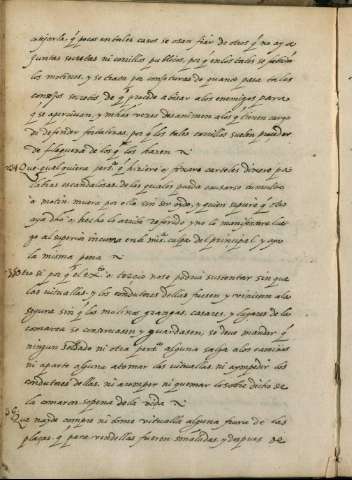 q̃ pocos en tales casos se osen fiar de otros q̃ no aya
juntas secretas ni corrillos publicos, por q̃ en los tales se
los motines, y se traen por conjeturas de quanto pasa en los
consejos secretos de q̃ procede avisar a los enemigos para
q̃ se aperciban, y muchas vezes desanimen a los q̃ tienen cargo
de defender por q̃ los tales corrillos suelen proceder
de flaqueza de los q̃ los hazen
Que qualquiera q̃ hiziere o fixare carteles dixere pa
labras escandalosas de las quales pueda causarse tumulto
o motin muera por ello sin ser oydo, y quien supiere q̃ otro
aya dho o hecho lo arriba referido y no lo manifestare lue
go al superior incurra en la misma culpa del principal y aya
la misma pena
Otro si por q̃ el no se podria sustentar sin que
las vituallas, y los conductores dellas fuesen y viniesen a la
segura sin q̃ los molinos, granjas, casares, y lugares de la
comarca se conservasen y guardasen, se deve mandar q̃
ningun soldado ni otra alguna salga a los caminos
ni aparte alguna a tomar las vituallas ni a ympedir los
conductores dellas, ni a romper ni quemar lo sobre dicho de
la comarca so pena de la vida
Que nayde compre ni tome vitualla alguna fuera de las
plaças q̃ para vendellas fueren señaladas y despues de